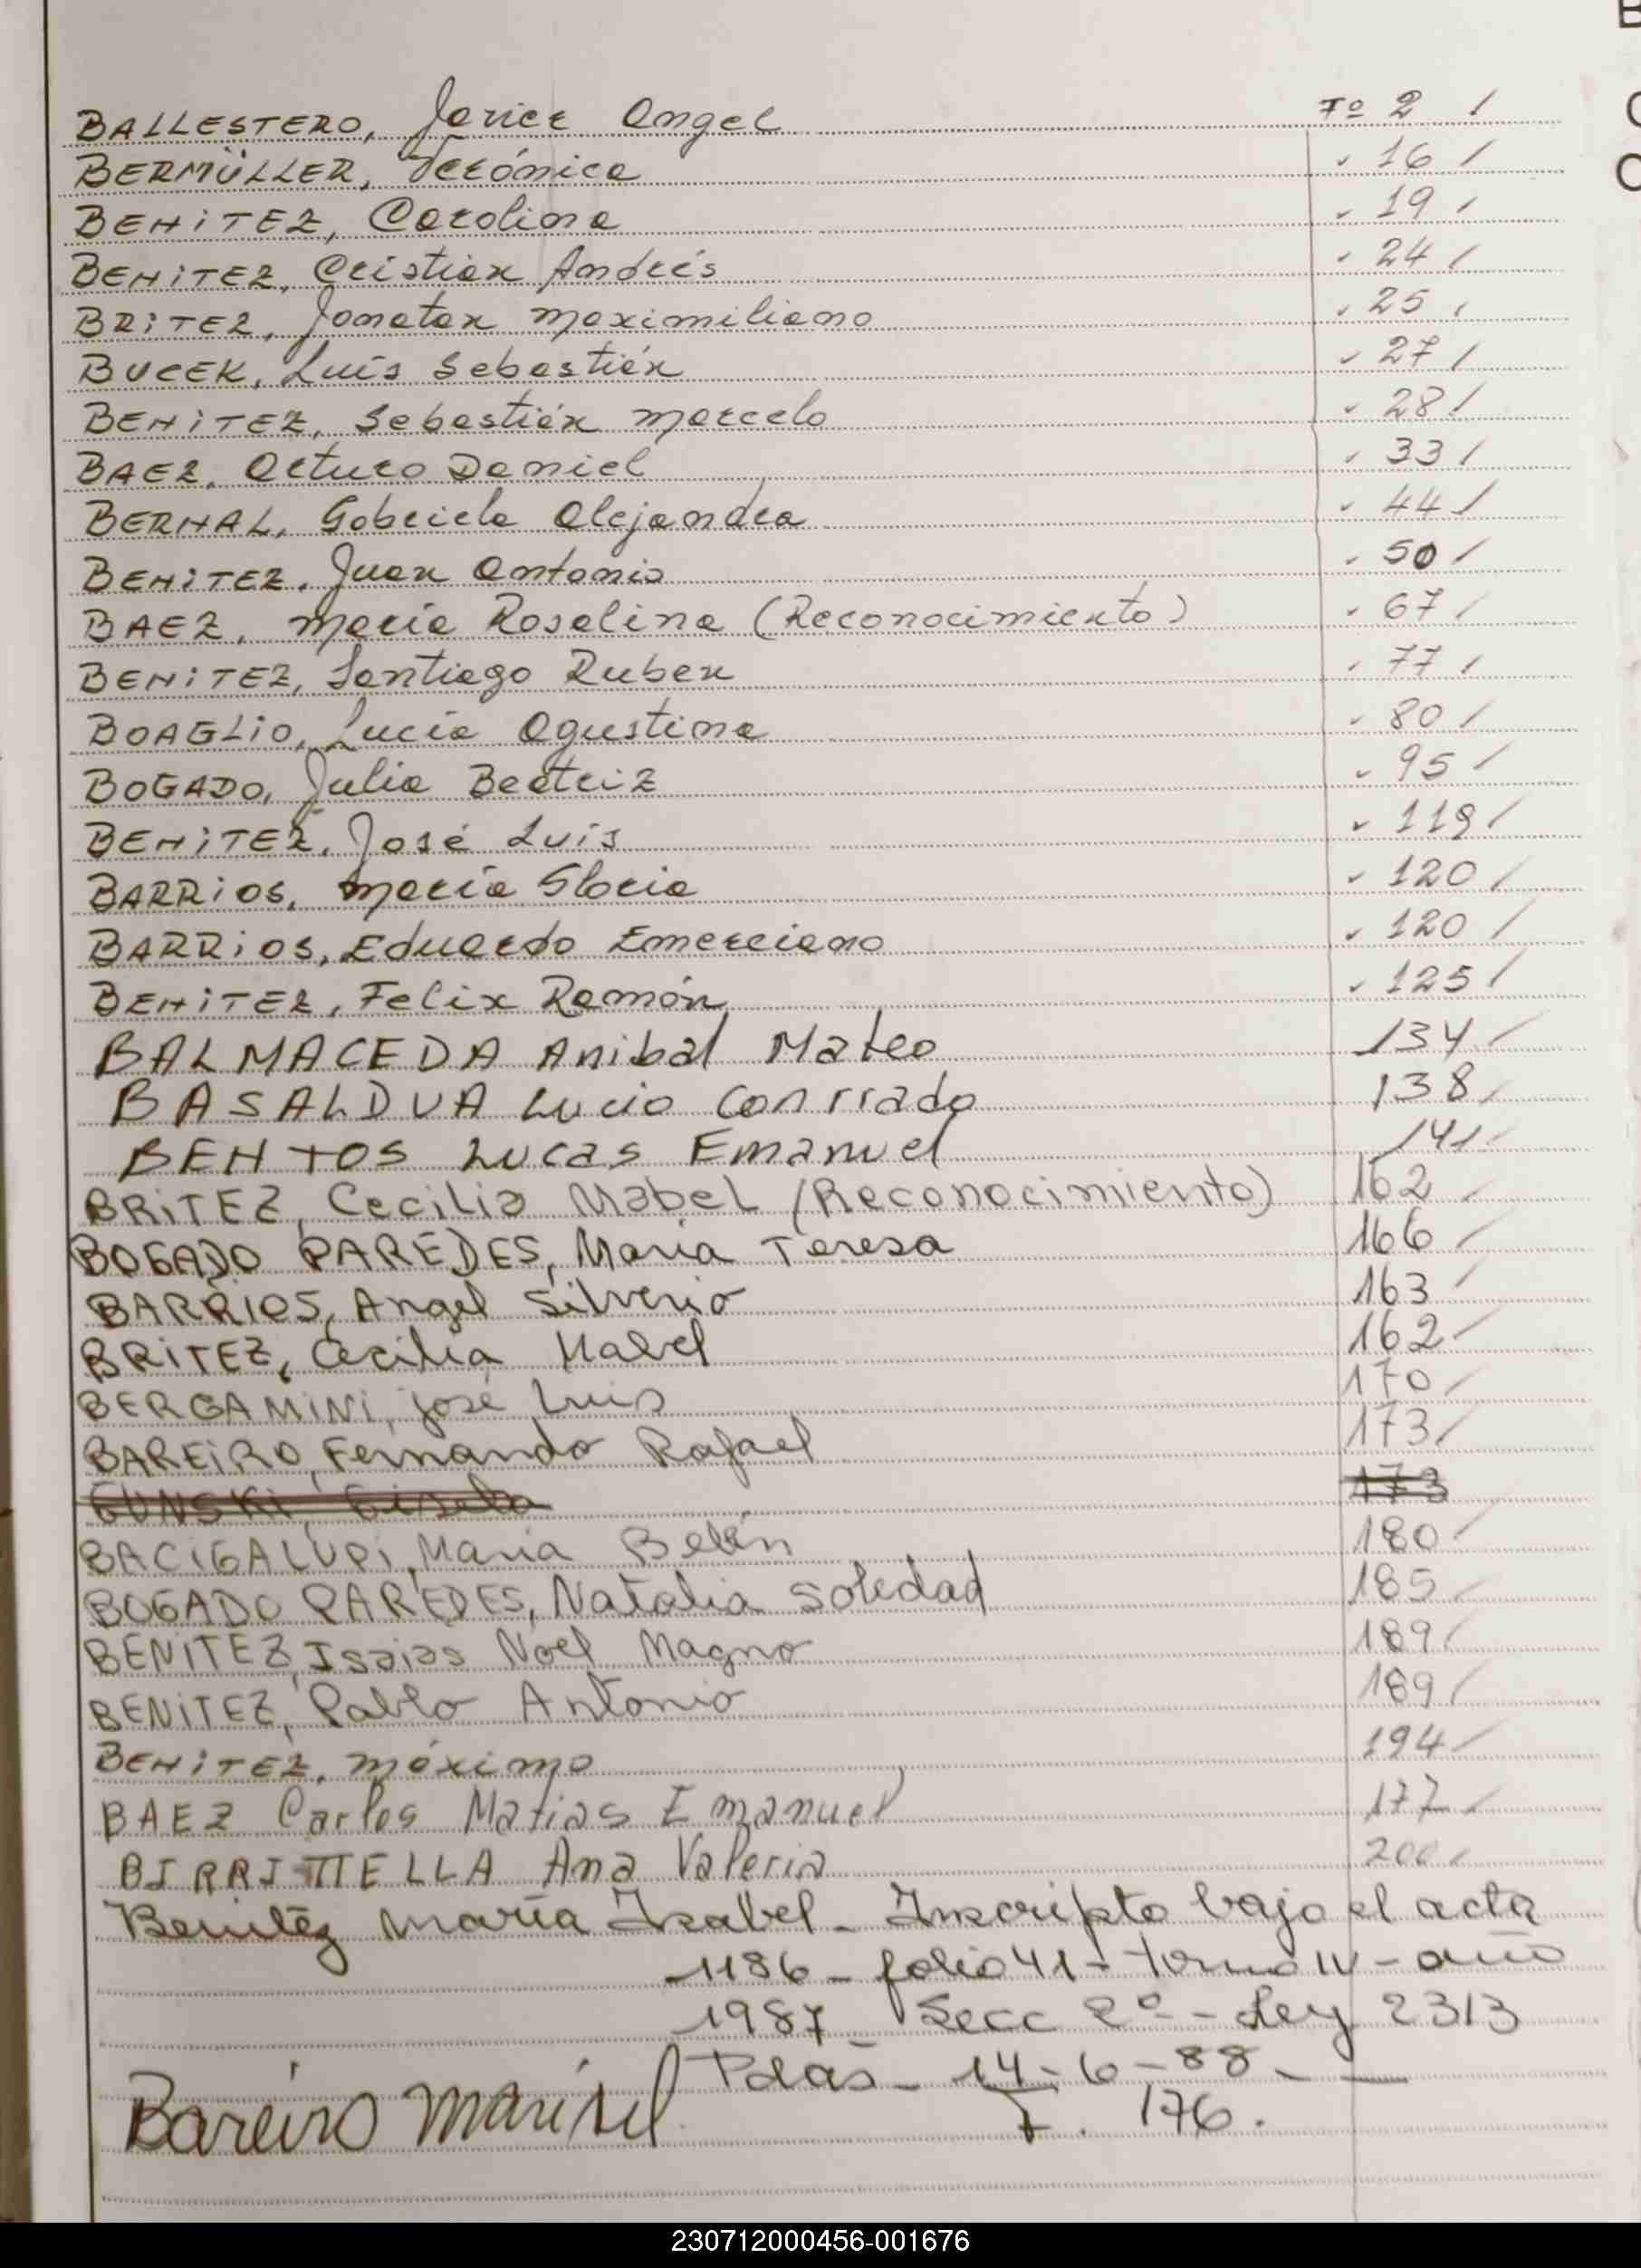 BALLESTERO, Javier Angel Fº 2 /
BERMÜLLER, Verónica " 16 /
BENITEZ, Carolina " 19 /
BENITEZ, Cristian Andrés " 24 /
BRITEZ, Jonatan Maximiliano " 25 /
BUCEK, Luis Sebastián " 27 /
BENITEZ, Sebastián Marcelo " 28 /
BAEZ, Arturo Daniel " 33 /
BERNAL, Gabriela Alejandra " 44 /
BENITEZ, Juan Antonio " 50 /
BAEZ, María Rosalina (Reconocimiento) " 67 /
BENITEZ, Santiago Ruben " 77 /
BOAGLIO, Lucía Agustina " 80 /
BOGADO, Julia Beatriz " 95 /
BENITEZ, José Luis " 119 /
BARRIOS, María Gloria " 120 /
BARRIOS, Eduardo Emerciano " 120 /
BENITEZ, Felix Ramón " 125 /
BALMACEDA Anibal Mateo 134 /
BASALDUA Lucio Conrrado 138 /
BENTOS Lucas Emanuel 141 /
BRITEZ, Cecilia Mabel (Reconocimiento) 162 /
BOGADO PAREDES, Maria Teresa 166 /
BARRIOS, Angel Silverio 163 /
BRITEZ, Cecilia Mabel 162 /
BERGAMINI, José Luis 170 /
BAREIRO, Fernando Rafael 173 /
GUNSKI, Gisela 173
BACIGALUPI, Maria Belén 180 /
BOGADO PAREDES, Natalia Soledad 185 /
BENITEZ, Isaias Noel Magno 189 /
BENITEZ, Pablo Antonio 189 /
BENITEZ, Máximo 194 /
BAEZ Carlos Matias Emanuel 177 /
BIRRITTELLA Ana Valeria 200 /
Benitéz María Isabel - Inscripto bajo el acta
1186 - folio 41 - tomo IV - año
1987 - Secc 2º - Ley 2313
Pdas - 14-6-88 -
Bareiro Marisel 176.
230712000456-001676